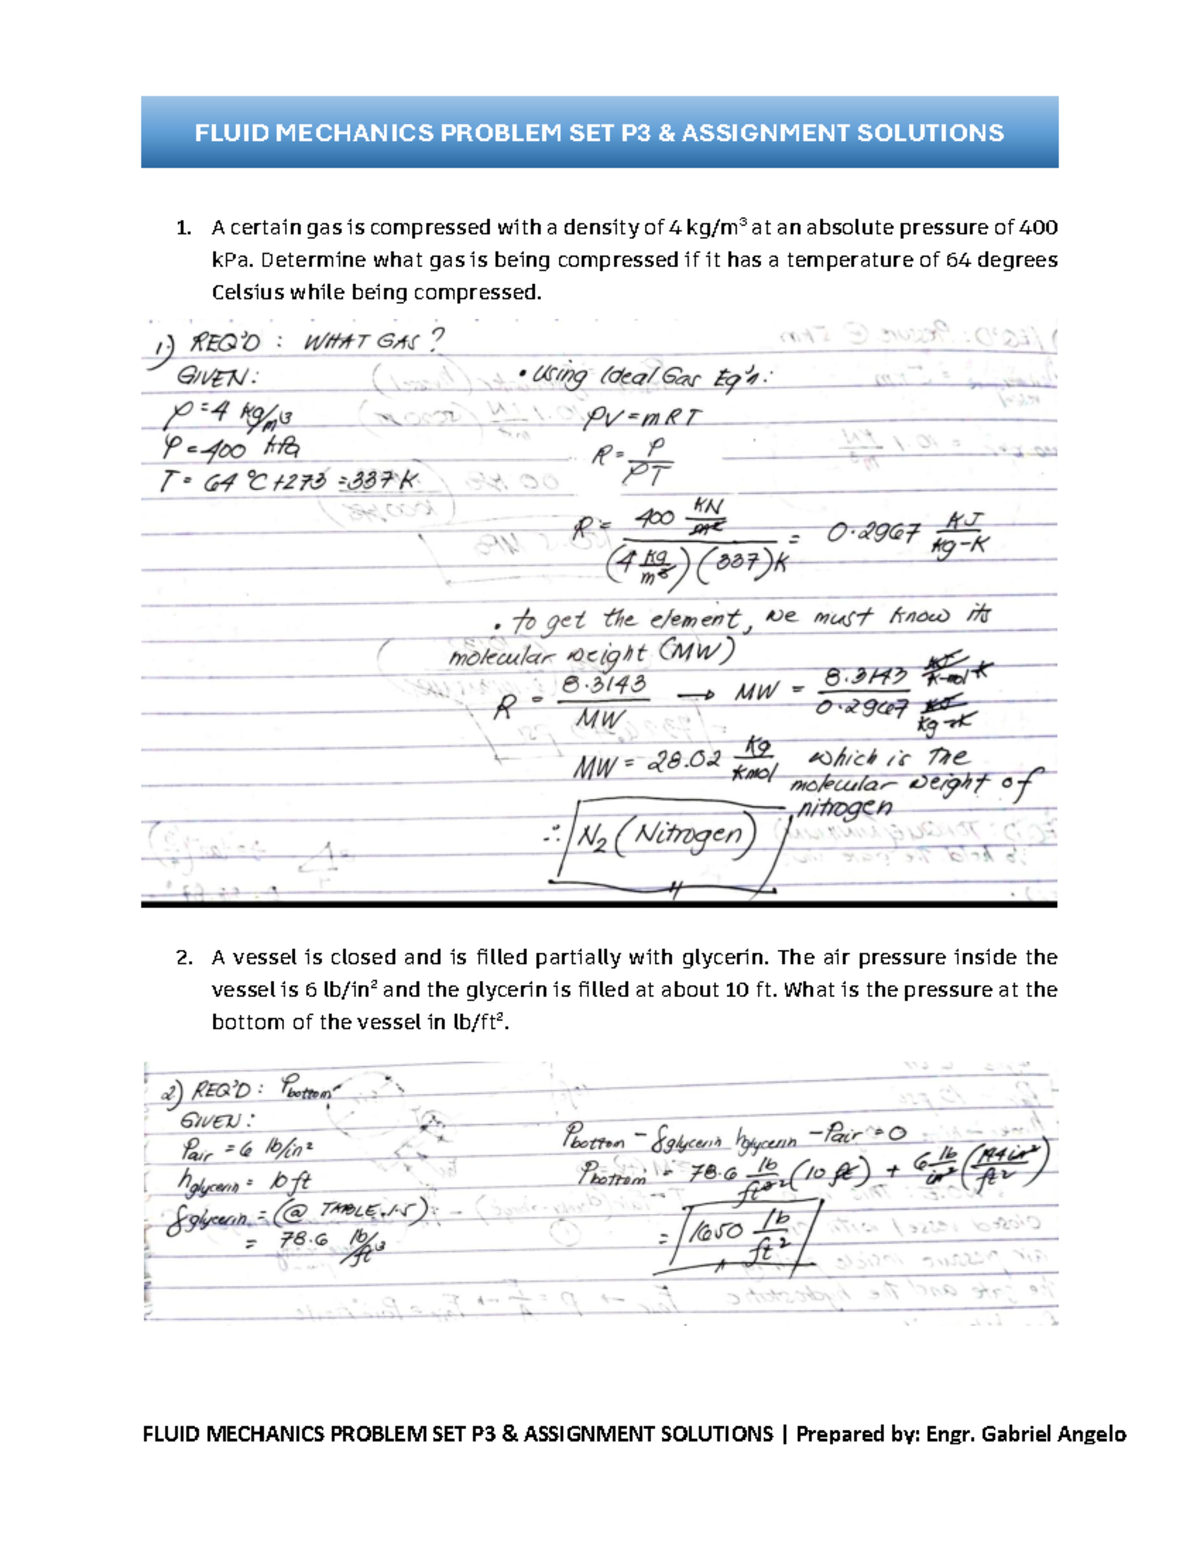 FLUID MECHANICS PROBLEM SET P3 & ASSIGNMENT SOLUTIONS
1. A certain gas is compressed with a density of 4 kg/m³ at an absolute pressure of 400
kPa. Determine what gas is being compressed if it has a temperature of 64 degrees
Celsius while being compressed.
1.) REQ'D : WHAT GAS ?
GIVEN:
• Using Ideal Gas Eq'n:
ρ = 4 kg/m³
PV = mRT
P = 400 kPa
R = P / ρT
T = 64 °C + 273 = 337 K
R = 400 KN/m² / (4 kg/m³)(337)K = 0.2967 KJ/kg-K
• to get the element, we must know its
molecular weight (MW)
R = 8.3143 / MW → MW = 8.3143 KJ/K-mol K / 0.2967 KJ/kg-K
MW = 28.02 Kg/Kmol which is the
molecular weight of
nitrogen
∴ N₂ (Nitrogen)
2. A vessel is closed and is filled partially with glycerin. The air pressure inside the
vessel is 6 lb/in² and the glycerin is filled at about 10 ft. What is the pressure at the
bottom of the vessel in lb/ft².
2) REQ'D : Pbottom
GIVEN:
Pair = 6 lb/in²
Pbottom - γglycerin hglycerin - Pair = 0
hglycerin = 10 ft
Pbottom = 78.6 lb/ft³ (10 ft) + 6 lb/in² (144 in²/ft²)
γglycerin = (@ TABLE 1.5)
= 78.6 lb/ft³
= 1650 lb/ft²
FLUID MECHANICS PROBLEM SET P3 & ASSIGNMENT SOLUTIONS | Prepared by: Engr. Gabriel Angelo